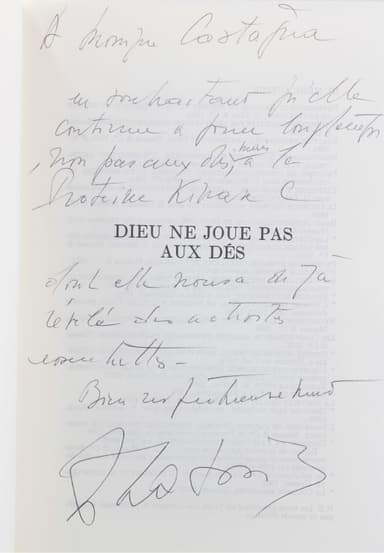 A Monique Castagna
en souhaitant qu'elle
continue à jouer longtemps
, non pas aux dés, mais à la
Protéine Kinase C
DIEU NE JOUE PAS
AUX DÉS
dont elle nous a déjà
révélé des activités
essentielles –
Bien respectueusement